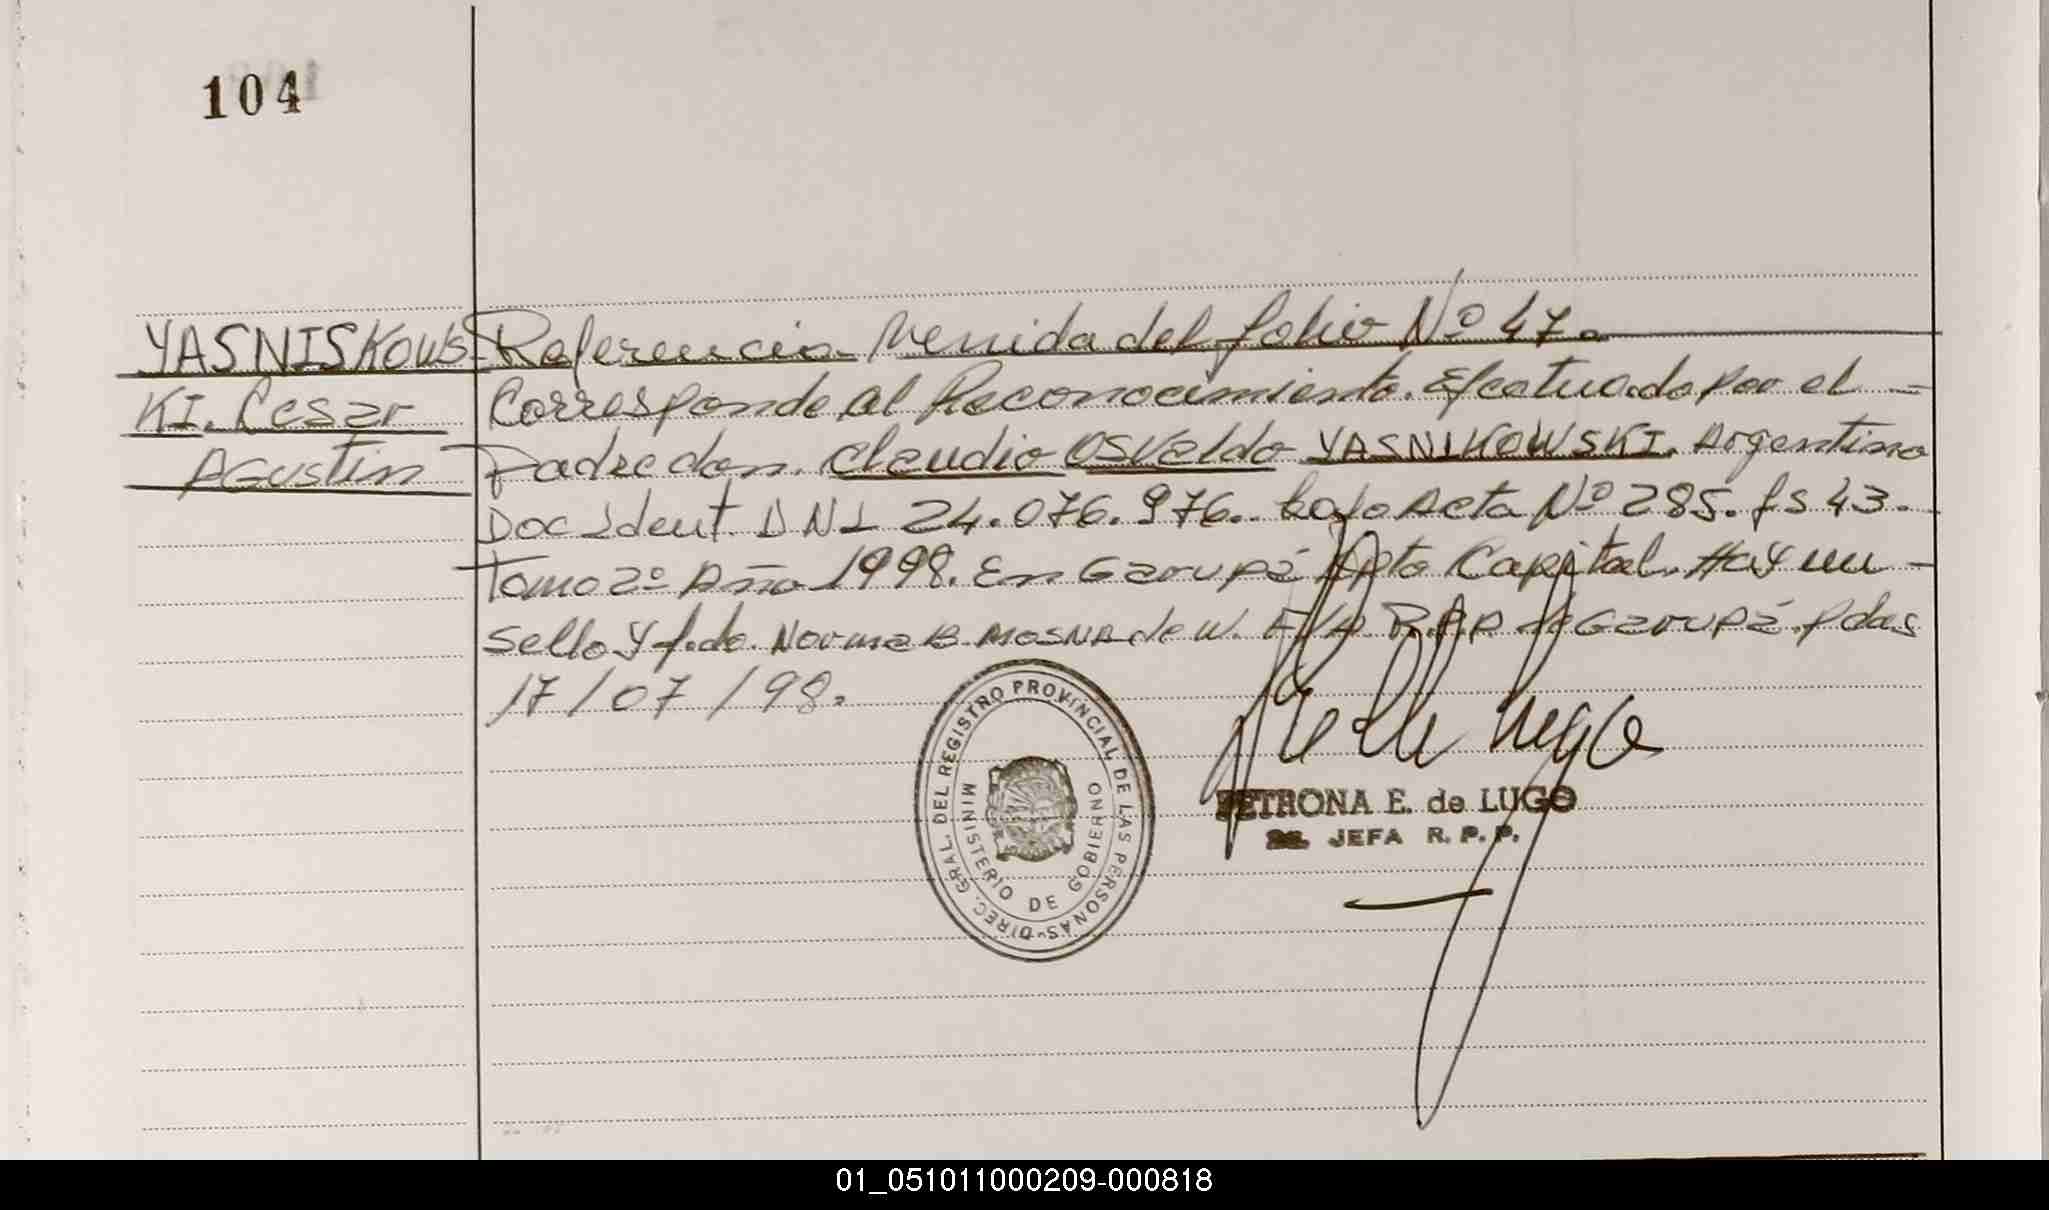 104
YASNISKOWS
KI. Cesar
Agustin
Referencia Venida del folio Nº 47.
Corresponde al Reconocimiento. Efectuado por el -
Padre don. Claudio Osvaldo YASNIKOWSKI. Argentino
Doc Ident. DNI 24.076.976.. bajo Acta Nº 285. fs 43.
Tomo 2º Año 1998. En Garupá Dpto Capital. Hay un -
Sello y f.do. Norma B. MOSNA de W. R.P.P de Garupá. Pdas
17/07/98.
DIREC. GRAL. DEL REGISTRO PROVINCIAL DE LAS PERSONAS-
MINISTERIO DE GOBIERNO
PETRONA E. de LUGO
JEFA R. P. P.
01_051011000209-000818